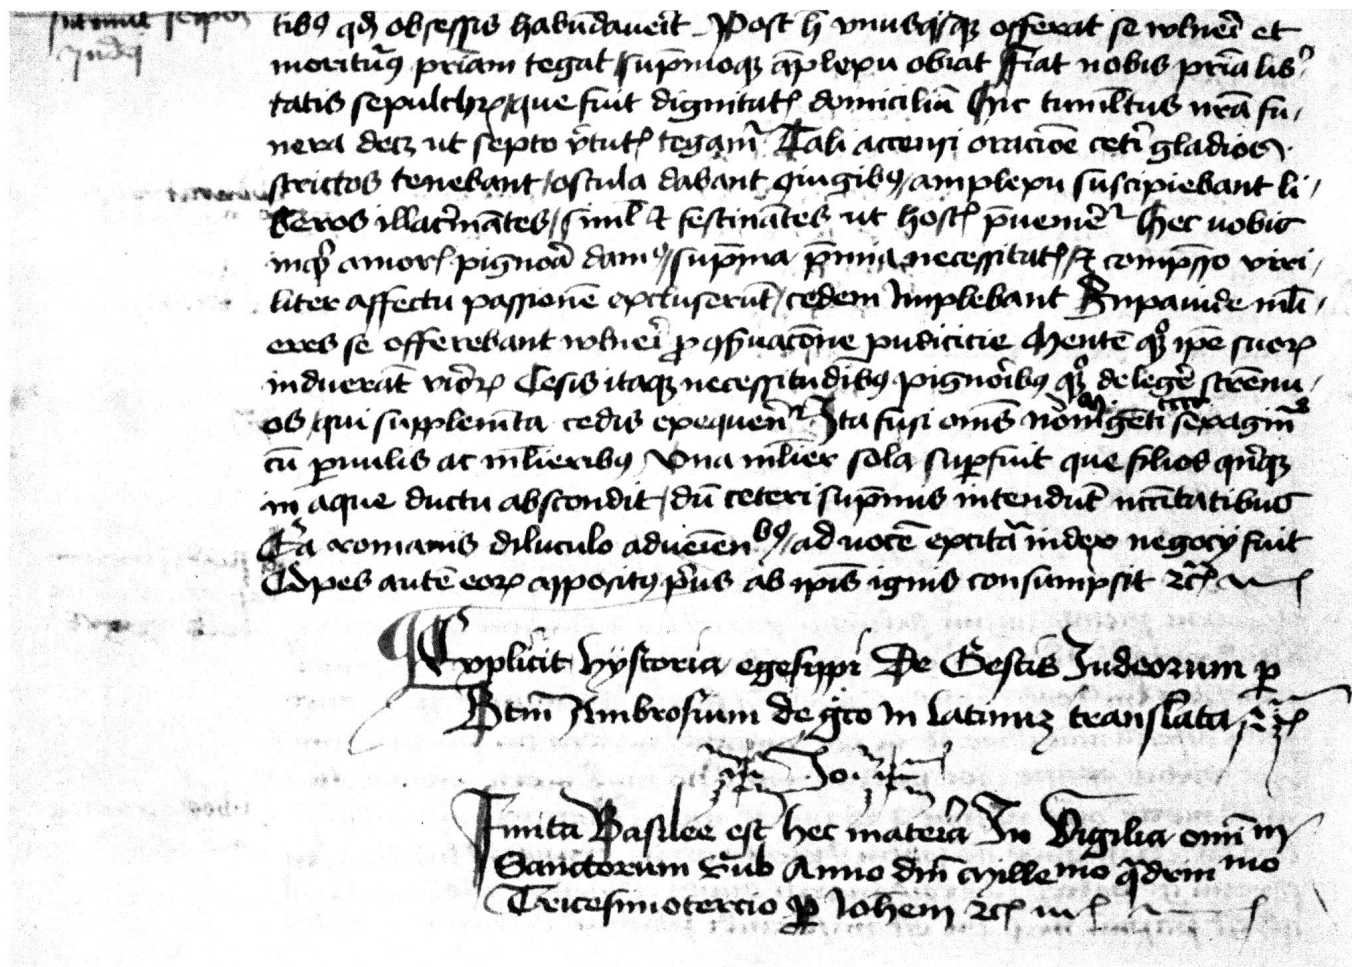 Judeꝗ
tibꝰ qđ obsessis habūdaverīt Post h̄ vnusqisqꝫ offerat se vulneri et
moriturꝰ pr̄iam tegat supremoqꝫ āplexu obeat Fiat nobis pr̄ia lis
tatis sepulchrū que fuit dignitatꝭ domiciliū Hic tumultus nr̄a fu,
nera decꝫ ut septo v̄tutꝭ tegamꝰ Tali accensi oracōe ceteri gladios
strictos tenebant / oscula dabant ꝯiugibꝰ / amplexu suscipiebant li,
beros illacrimātes / simul ⁊ festinātes ut hostꝭ p̄uenirēt Hec uobis
inqꝭ amorꝭ pignora damꝰ / suprema premia necessitatꝭ / ⁊ compresso viri,
liter affectu passionē excluserunt / cedem Implebant Inpauide muli,
eres se offerebant vulneri ꝓ ꝯseruacōne pudicicie Mentē qꝫ ipe suoꝝ
induerāt viroꝝ Cesis itaqꝫ necessitudībꝰ pignoribꝰ qꝫ delegere strēnu,
os / qui supplemēta cedis exequerent Ita fusi om̄s nongēti sexaginta
cū puulis ac mulieribꝰ Vna mulier sola supfuit que filios qnqꝫ
in aque ductu abscondit / dū ceteri supremis intendūt nccītatibus
Ea romanis diluculo aduenienbꝰ / ad vocē excitata index negocij fuit
Opes autē eoꝝ appositꝰ prius ab ip̄is ignis consumpsit ⁊cꝭ
Explicit hystoria egesippi De Gestis Iudeorum ꝑ
Btm̄ Ambrosium de gͨto in latinuꝫ translata
Jo.
Finita Basilee est hec materia In Vigilia omīm
Sanctorum Sub Anno dm̄ Millemo qͣdrinmo
Tricesimotercio ꝑ Iohem ⁊cꝭ